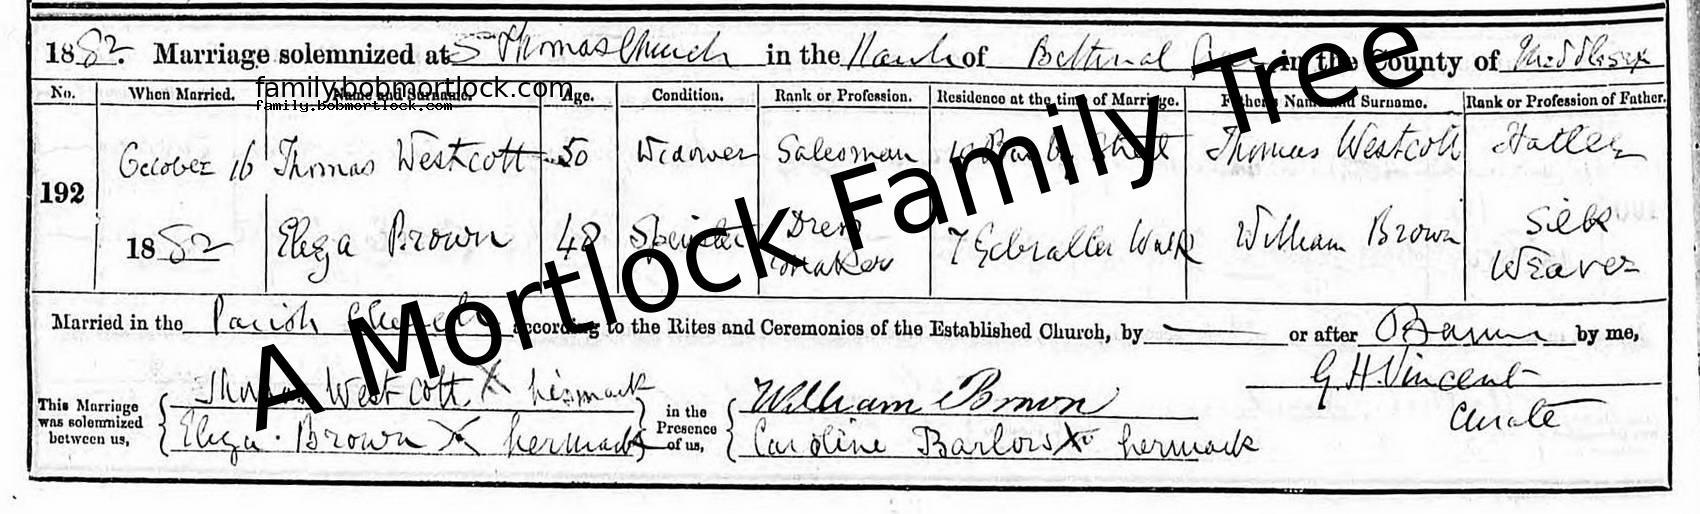 1882. Marriage solemnized at St Thomas Church in the Parish of Bethnal Green in the County of Middlesex
familybobmortlock.com
family.bobmortlock.com
No. When Married. Name and Surname. Age. Condition. Rank or Profession. Residence at the time of Marriage. Father's Name and Surname. Rank or Profession of Father.
192 October 16 Thomas Westcott 50 Widower Salesman Street Thomas Westcott Hatter
1882 Eliza Brown 48 Spinster Dress Maker 7 Gibralter Walk William Brown Silk Weaver
Married in the Parish Church according to the Rites and Ceremonies of the Established Church, by or after Banns by me,
G. H. Vincent
Curate
This Marriage was solemnized between us, Thomas Westcott X his mark in the Presence of us, William Brown
Eliza Brown X her mark Caroline Barlow X her mark
A Mortlock Family Tree